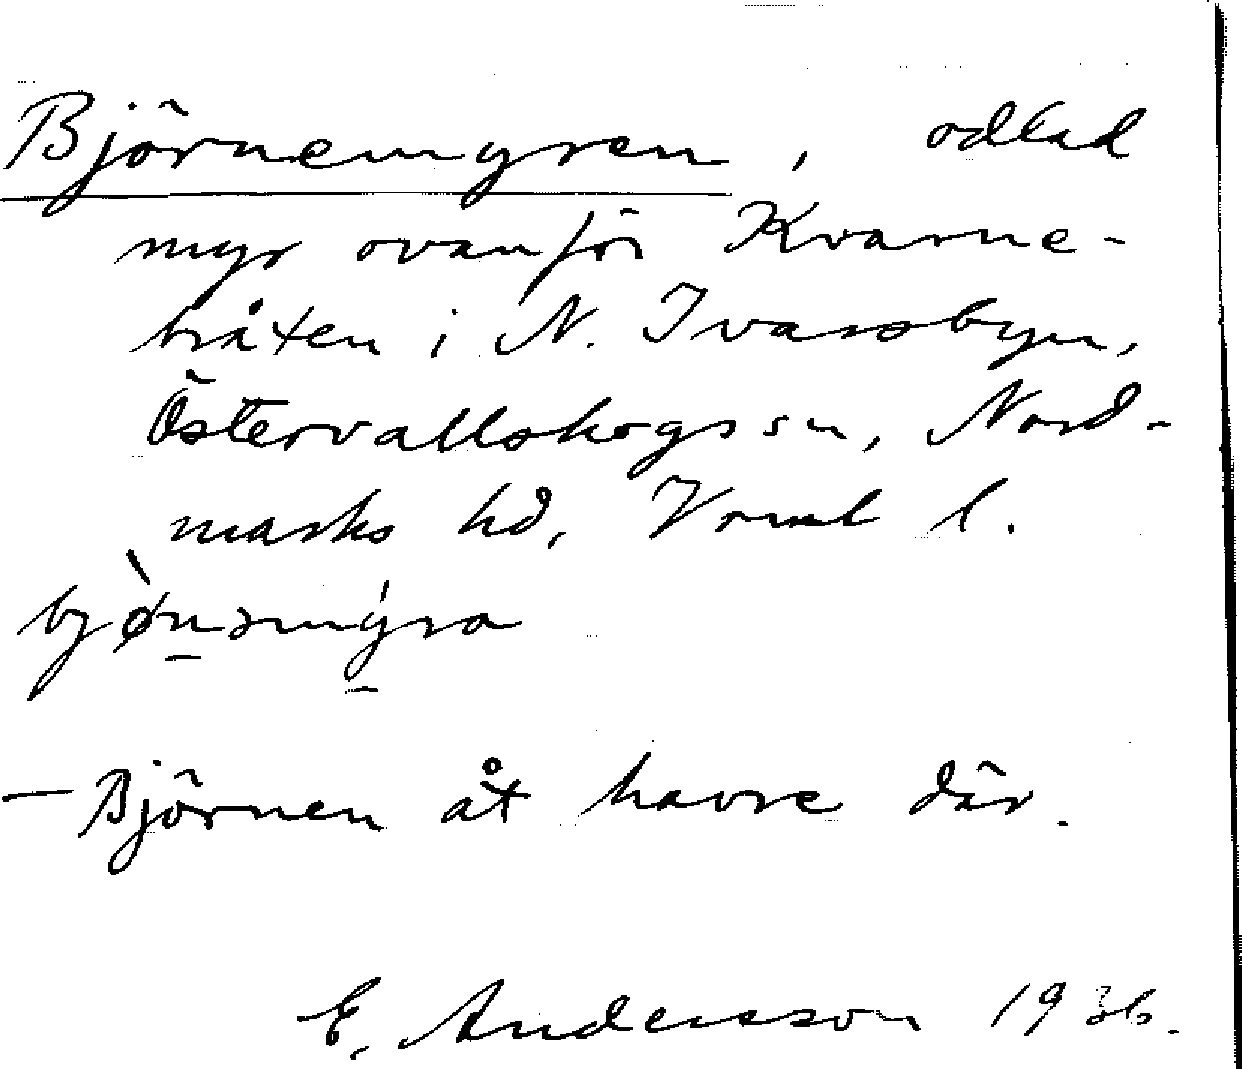 Björnemyren, odlad
myr ovanför Kvarne-
bråten i N. Ivarsbyn,
Östervallskogs sn, Nord-
marks hd, Vrml l.
bjø̀nəmýra
— Björnen åt havre där.
E. Andersson 1936.